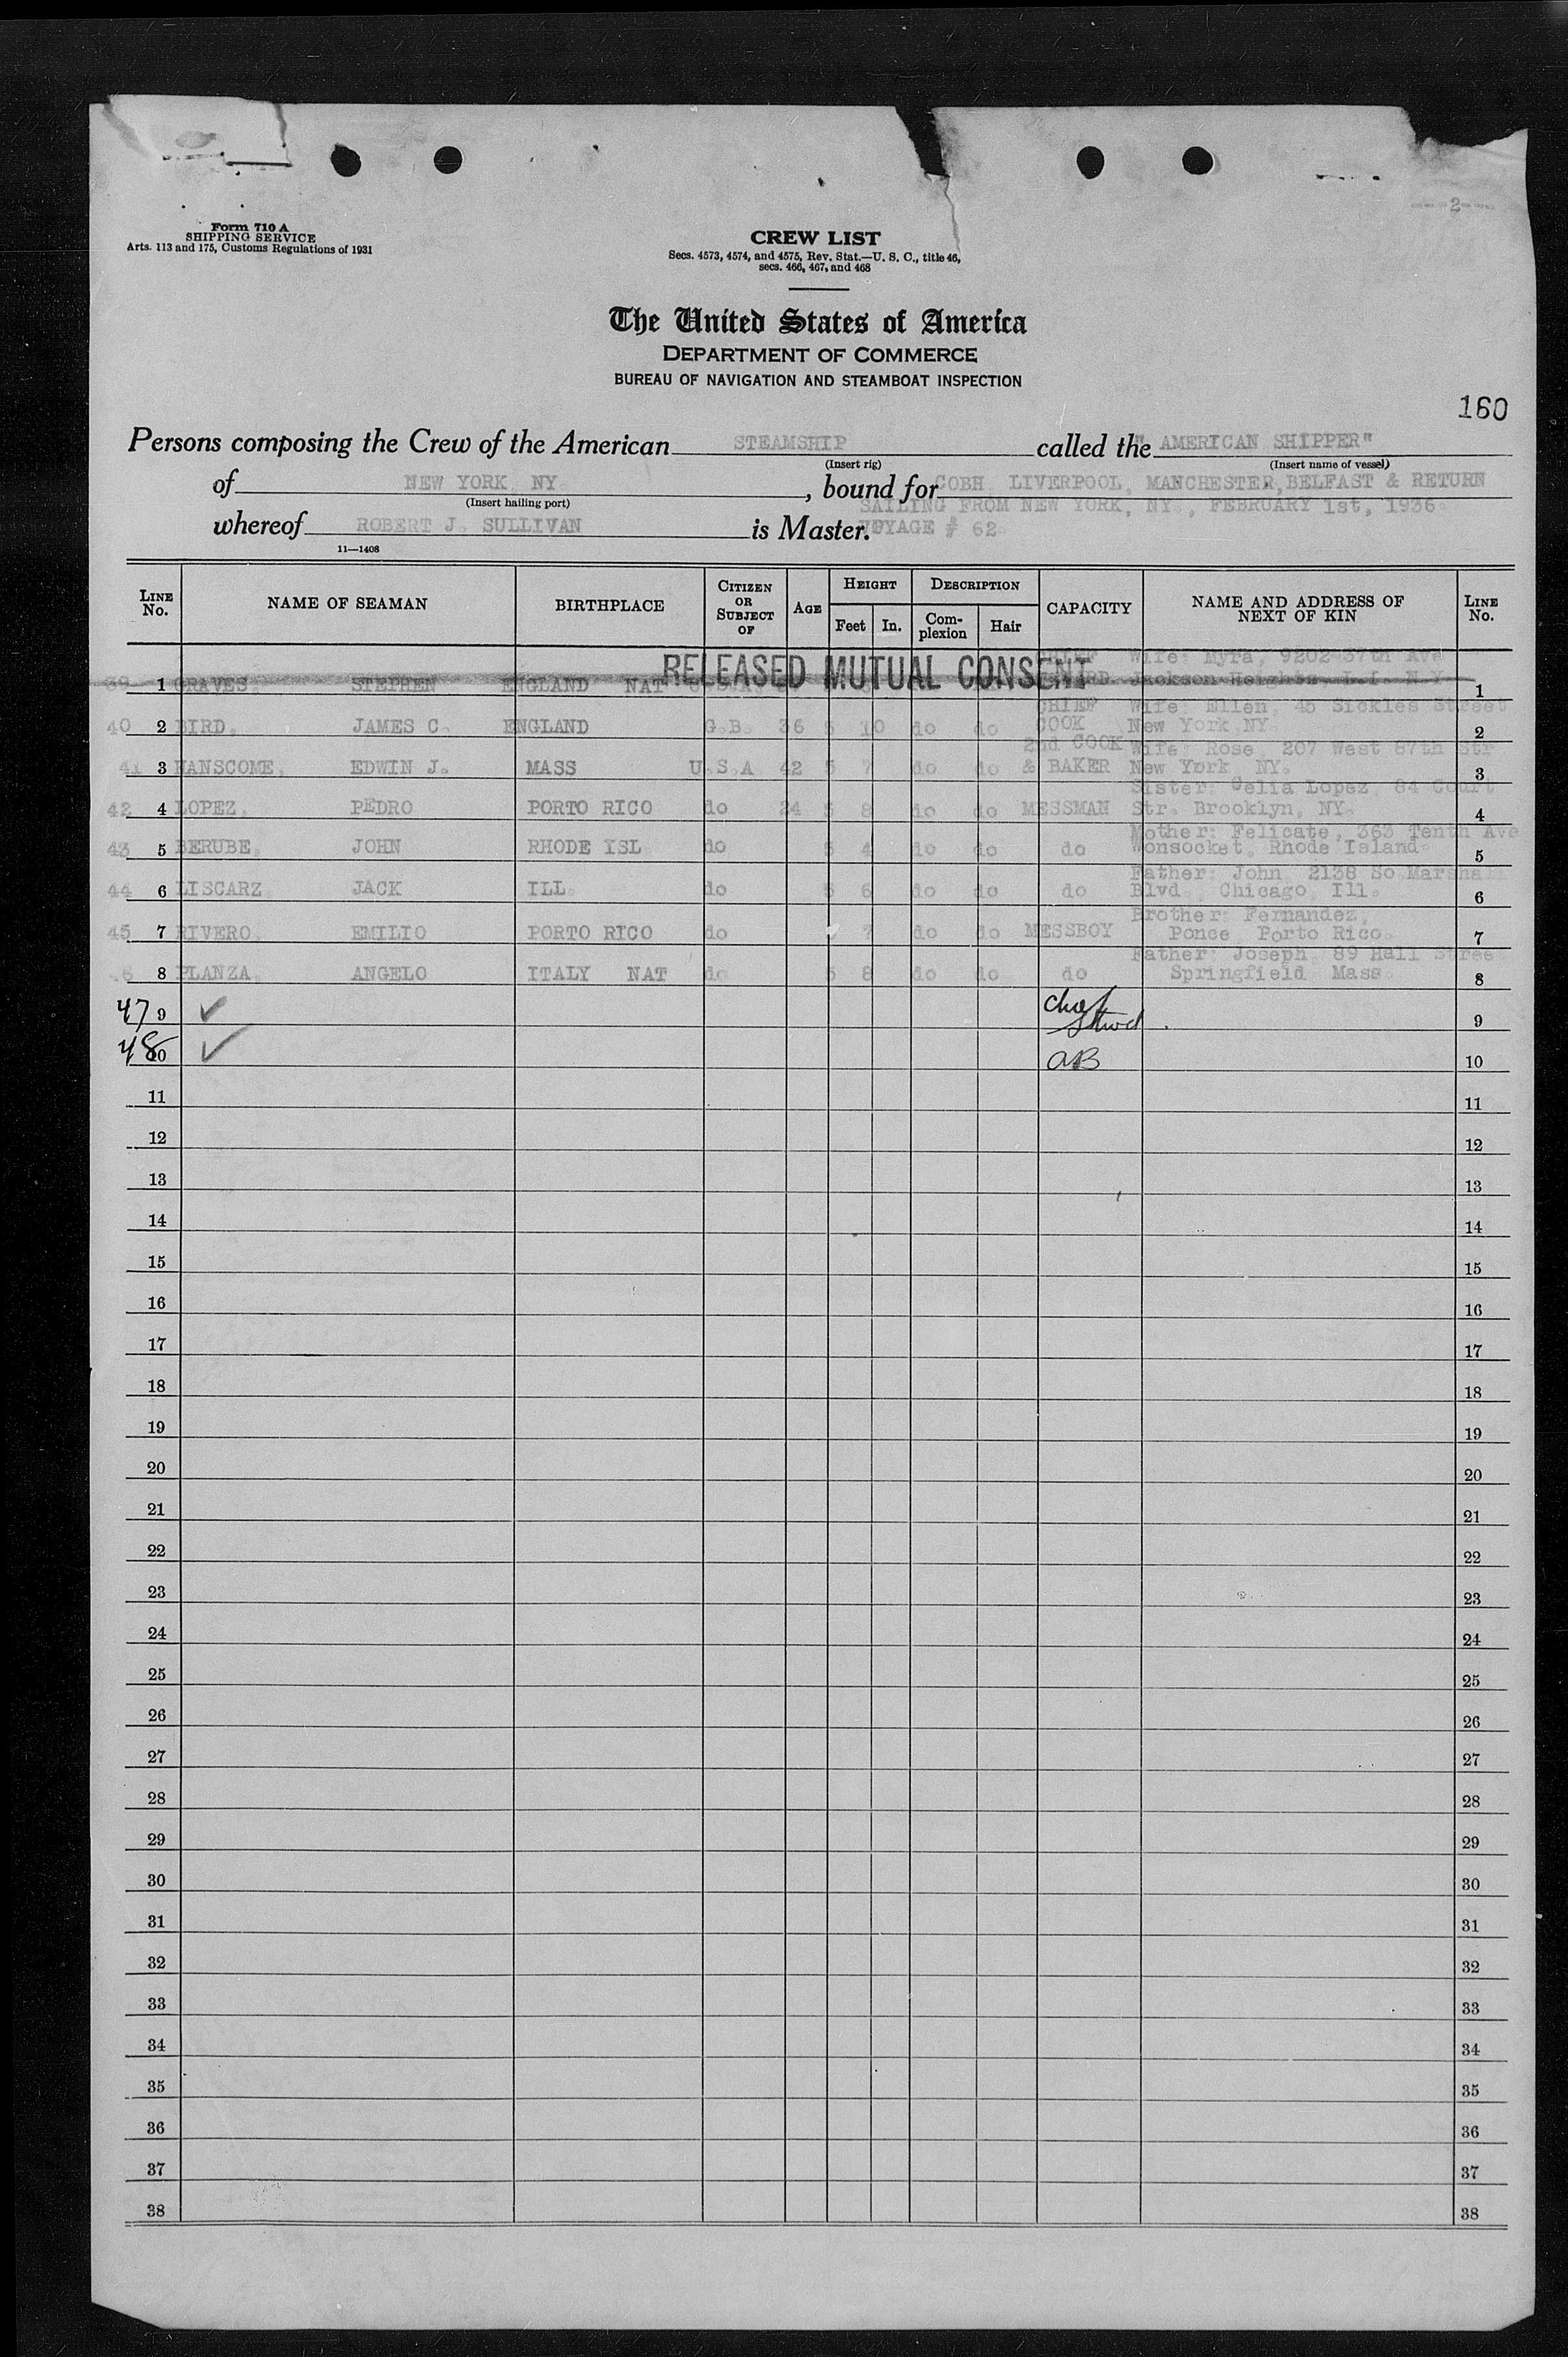 --2--
Form 710 A
SHIPPING SERVICE
Arts. 113 and 175, Customs Regulations of 1931
CREW LIST
Secs. 4573, 4574, and 4575, Rev. Stat.—U. S. C., title 46,
secs. 466, 467, and 468
The United States of America
DEPARTMENT OF COMMERCE
BUREAU OF NAVIGATION AND STEAMBOAT INSPECTION
160
Persons composing the Crew of the American STEAMSHIP called the "AMERICAN SHIPPER"
(Insert rig) (Insert name of vessel)
of NEW YORK NY. , bound for COBH LIVERPOOL, MANCHESTER, BELFAST & RETURN
(Insert hailing port) SAILING FROM NEW YORK, NY., FEBRUARY 1st, 1936.
whereof ROBERT J. SULLIVAN is Master. VOYAGE # 62.
11—1408
LINE No. NAME OF SEAMAN BIRTHPLACE CITIZEN OR SUBJECT OF AGE HEIGHT Feet In. DESCRIPTION Complexion Hair CAPACITY NAME AND ADDRESS OF NEXT OF KIN LINE No.
RELEASED MUTUAL CONSENT
CHIEF Wife: Myra, 9202-37th Ave
39 1 GRAVES, STEPHEN ENGLAND NAT Jackson Heights, L.I. N.Y. 1
CHIEF Wife: Ellen, 45 Sickles Street
40 2 BIRD, JAMES C. ENGLAND G.B. 36 5 10 do do COOK New York NY. 2
2nd COOK Wife: Rose, 207 West 87th Str
41 3 HANSCOME, EDWIN J. MASS U.S.A 42 5 7 do do & BAKER New York, NY. 3
Sister: Celia Lopez, 84 Court
42 4 LOPEZ, PEDRO PORTO RICO do 24 5 8 do do MESSMAN Str. Brooklyn, NY. 4
Mother: Felicate, 363 Tenth Ave
43 5 BERUBE, JOHN RHODE ISL. do 5 4 do do do Wonsocket, Rhode Island. 5
Father: John, 2138 So Marshall
44 6 LISCARZ JACK ILL. do 5 6 do do do Blvd. Chicago, Ill. 6
Brother: Fernandez,
45 7 RIVERO, EMILIO PORTO RICO do 7 do do MESSBOY Ponce Porto Rico. 7
Father: Joseph, 89 Hall Street
46 8 PLANZA, ANGELO ITALY NAT do 5 8 do do do Springfield Mass. 8
47 9 ✓ Chief Stwd. 9
48 10 ✓ AB 10
11 11
12 12
13 13
14 14
15 15
16 16
17 17
18 18
19 19
20 20
21 21
22 22
23 23
24 24
25 25
26 26
27 27
28 28
29 29
30 30
31 31
32 32
33 33
34 34
35 35
36 36
37 37
38 38